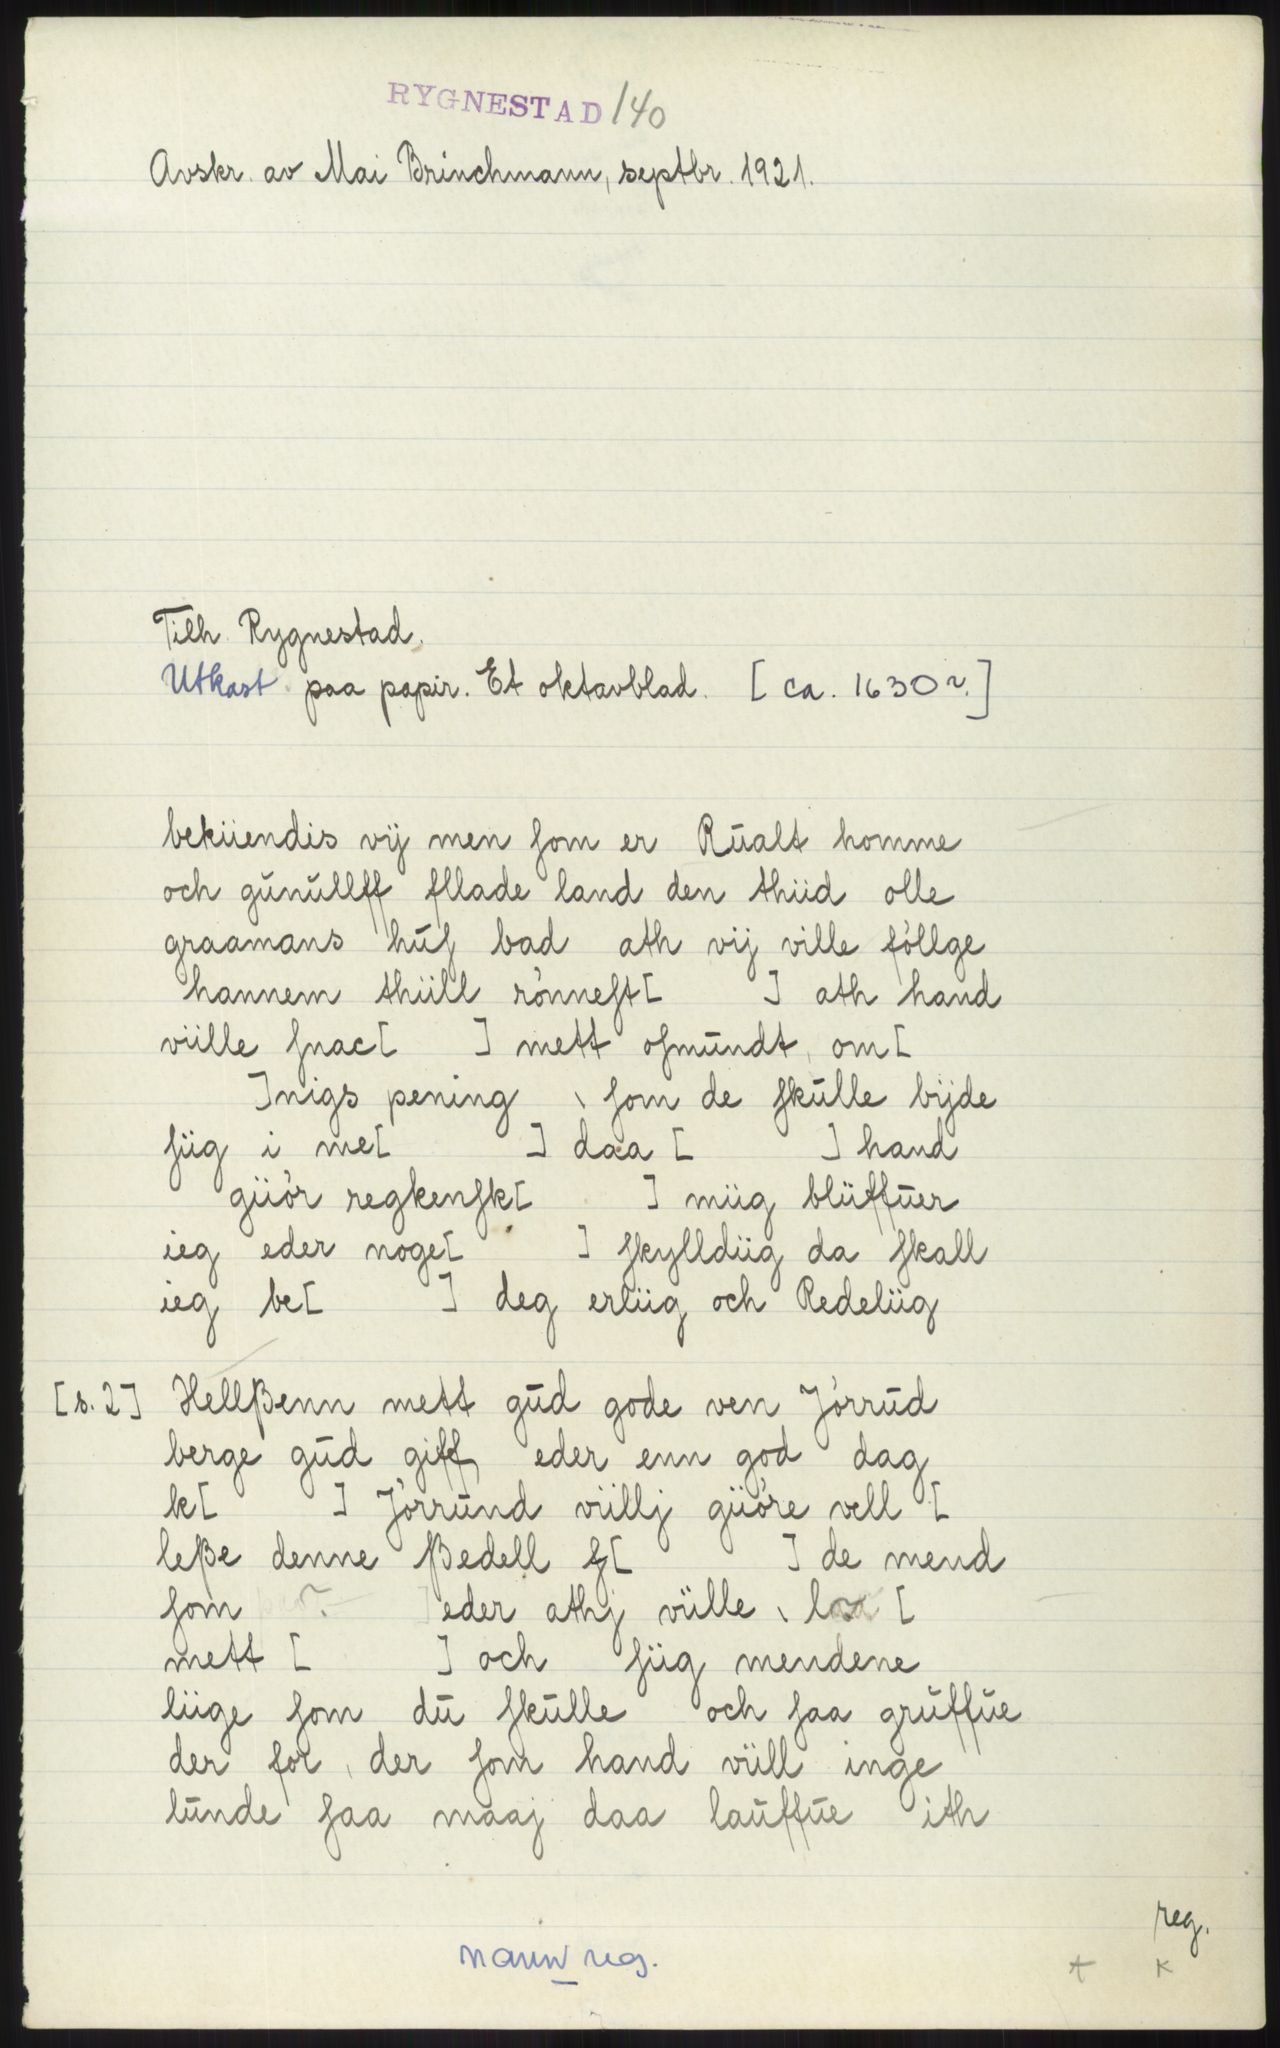 RYGNESTAD 140
Avskr. av Mai Brinchmann, septbr. 1921.
Tilh. Rygnestad.
Utkast paa papir. Et oktavblad. [ca. 1630?]
bekiiendis vij men som er Rūalt homme
och gūnūllff fllade land den thiid olle
graamans hūs bad ath vij ville föllge
hannem thiill rönnest[ ] ath hand
viille snac[ ] mett osmūndt, om[
]nigs pening \ som de skūlle bijde
siig i me[ ] daa [ ] hand
giiör regkensk[ ] miig bliiffuer
ieg eder noge[ ] skylldiig da skall
ieg be[ ] deg erliig och Redeliig
[s. 2] Hellßenn mett gūd gode ven Jörrūd
berge gūd giff eder enn god dag
k[ ] Jörrūnd viillj giiöre vell [
leße denne ßedell [ ] de mend
som ? ] eder athj viille \ [
mett [ ] och siig mendene
liige som dū skūlle och saa grūffūe
der for, der som hand viill inge
lūnde saa maaj daa laūffūe ith
reg.
navnreg.
+ K